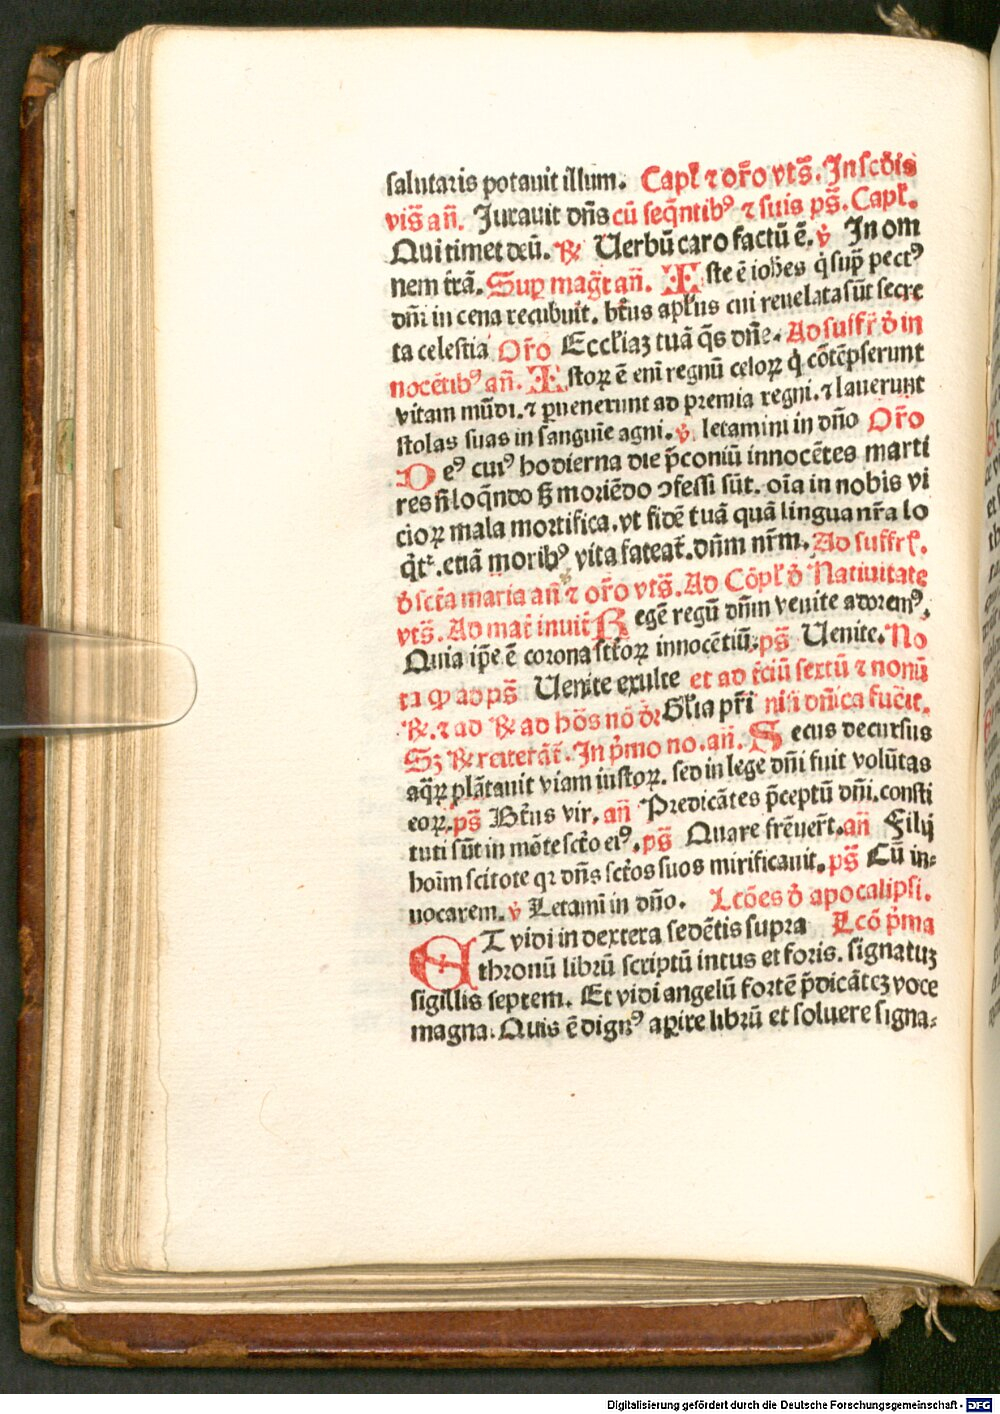 salutaris potauit illum. Capl̄ ⁊ or̄o vts̄. In scd̄is
vis̄ an̄. Jurauit dn̄s cū seq̄ntibꝰ ⁊ suis ps̄. Capl̄.
Qui timet deū. ℟ Uerbū caro factū ē. ℣ In om
nem tr̄ā. Suꝑ maḡt an̄. Iste ē ioh̄es q̇ suꝑ pectꝰ
dn̄i in cena recubuit. bt̄us apl̄us cui reuelata sūt secre
ta celestia Or̄o Eccl̄iaꝫ tuā q̄s dn̄e. Ad suffr̄ d̄ in
nocētibꝰ an̄. Istoꝝ ē eni̅ regnū celoꝝ q̇ cōtēpserunt
vitam mūdi. ⁊ ꝑuenerunt ad premia regni. ⁊ lauerunt
stolas suas in sanguīe agni. ℣ letamini in dn̄o Or̄o
Deꝰ cuiꝰ hodierna die p̄coniū innocētes marti
res n̄ loq̄ndo sꝫ moriēdo ↄfessi sūt. oīa in nobis vi
cioꝝ mala mortifica. vt fidē tuā quā lingua nr̄a lo
q̄tr̄. etiā moribꝰ vita fateat̄. dn̄m nr̄m. Ad suffrl̄.
d̄ sct̄a maria an̄ ⁊ or̄o vts̄. Ad Cōpl̄ d̄ Natiuitate
vts̄. Ad mat̄ inuit̄ Regē regū dn̄m venite adoremꝰ.
Quia ip̄e ē corona sct̄oꝝ innocētiū. ps̄ Uenite. No
ta ꝙ ad ps̄ Uenite exulte et ad t̄ciū sextū ⁊ nonū
℟. ⁊ ad ℟ ad hōs nō dr̄ Gl̄ia pr̄i nisi dn̄ica fuc̄it.
Sꝫ ℟ reiterāt̄. In p̄mo no. an̄. Secus decursus
aq̄ꝝ plātauit viam iustoꝝ. sed in lege dn̄i fuit volūtas
eoꝝ. ps̄ Bt̄us vir. an̄ Predicātes p̄ceptū dn̄i. consti
tuti sūt in mōte sct̄o eiꝰ. ps̄ Quare frēuer̄t. an̄ Filij
hoīm scitote qꝛ dn̄s sct̄os suos mirificauit. ps̄ Cū in⸗
uocarem. ℣ Letami̅ in dn̄o. Lcōes d̄ apocalipsi.
ET vidi in dextera sedētis supra Lcō p̄ma
thronū librū scriptū intus et foris. signatuꝫ
sigillis septem. Et vidi angelū fortē p̄dicāteꝫ voce
magna. Quis ē dignꝰ aꝑire librū et soluere signa⸗
Digitalisierung gefördert durch die Deutsche Forschungsgemeinschaft - DFG